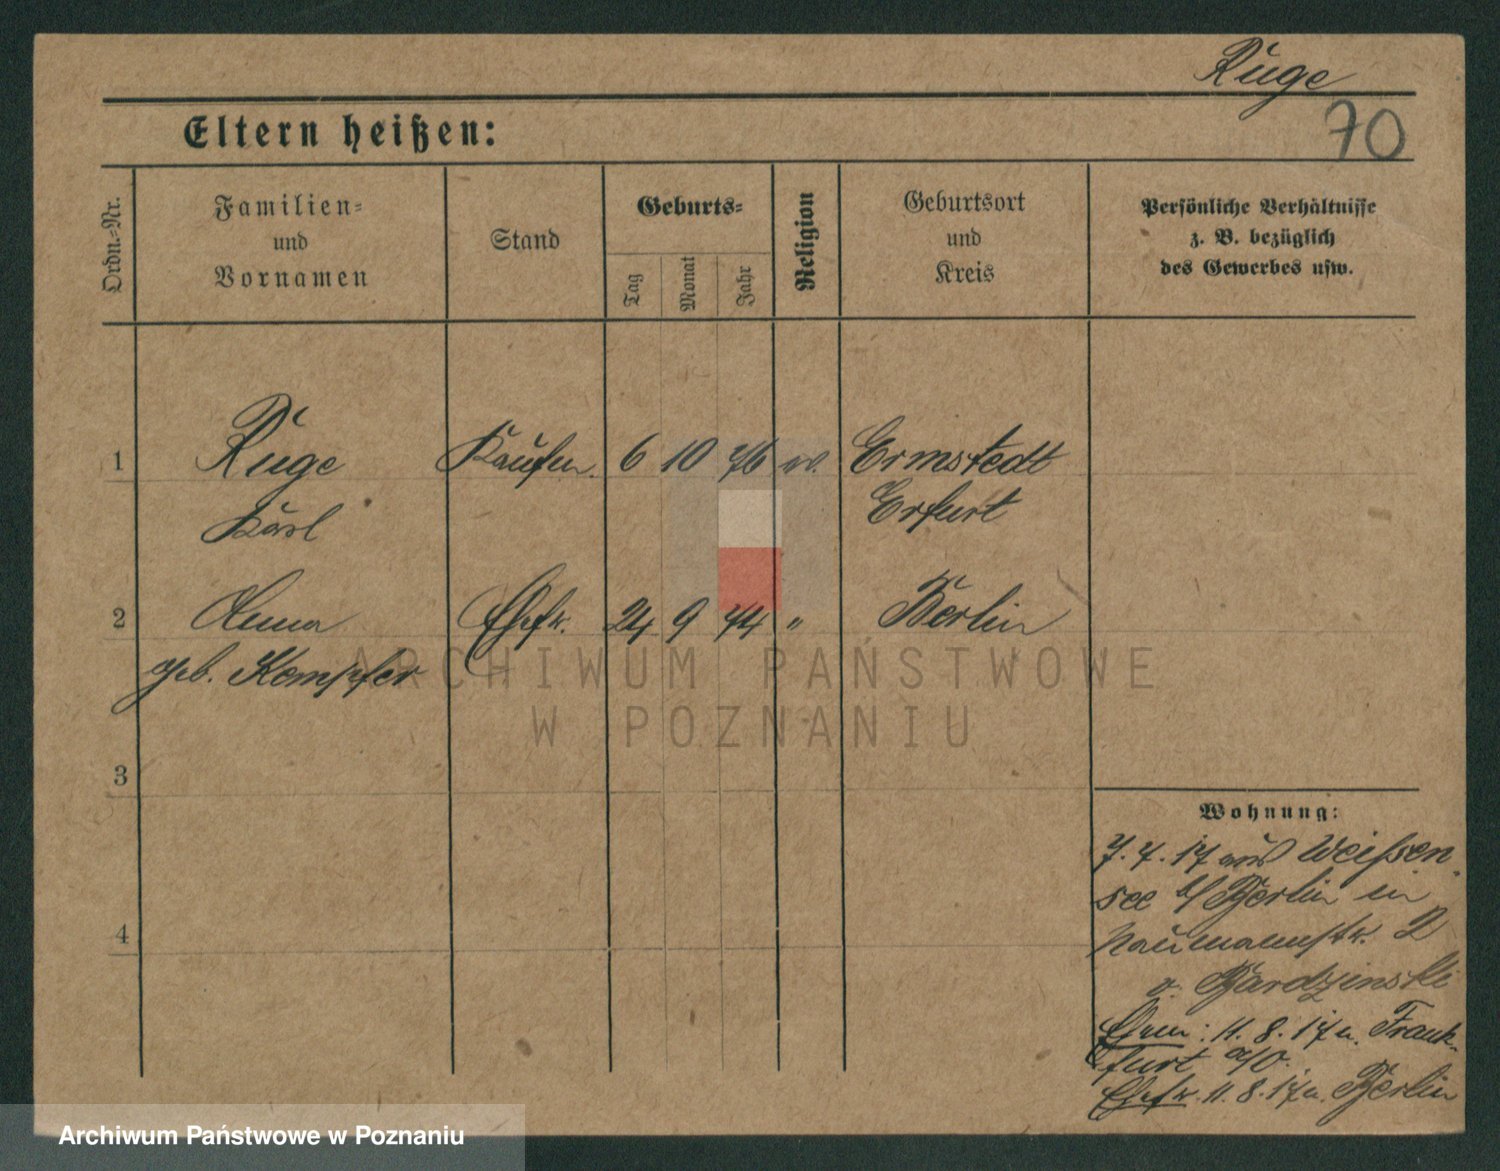 Ruge
70
Eltern heißen:
Ordn.-Nr.
Familien-
und
Vornamen
Stand
Geburts-
Tag
Monat
Jahr
Religion
Geburtsort
und
Kreis
Persönliche Verhältnisse
z. B. bezüglich
des Gewerbes usw.
1 Ruge Kaufm. 6 10 76 ev. Ermstedt
Karl Erfurt
2 Anna Ehefr. 24 9 74 " Berlin
geb. Kempfer
3
4
Wohnung:
7. 7. 17 aus Weißen-
see b/ Berlin in
Naumannstr. 2
b. Bardzinski
Ehem: 11. 8. 17 n. Frank-
furt a/O.
Ehefr. 11. 8. 17 n. Berlin
ARCHIWUM PAŃSTWOWE
W POZNANIU
Archiwum Państwowe w Poznaniu